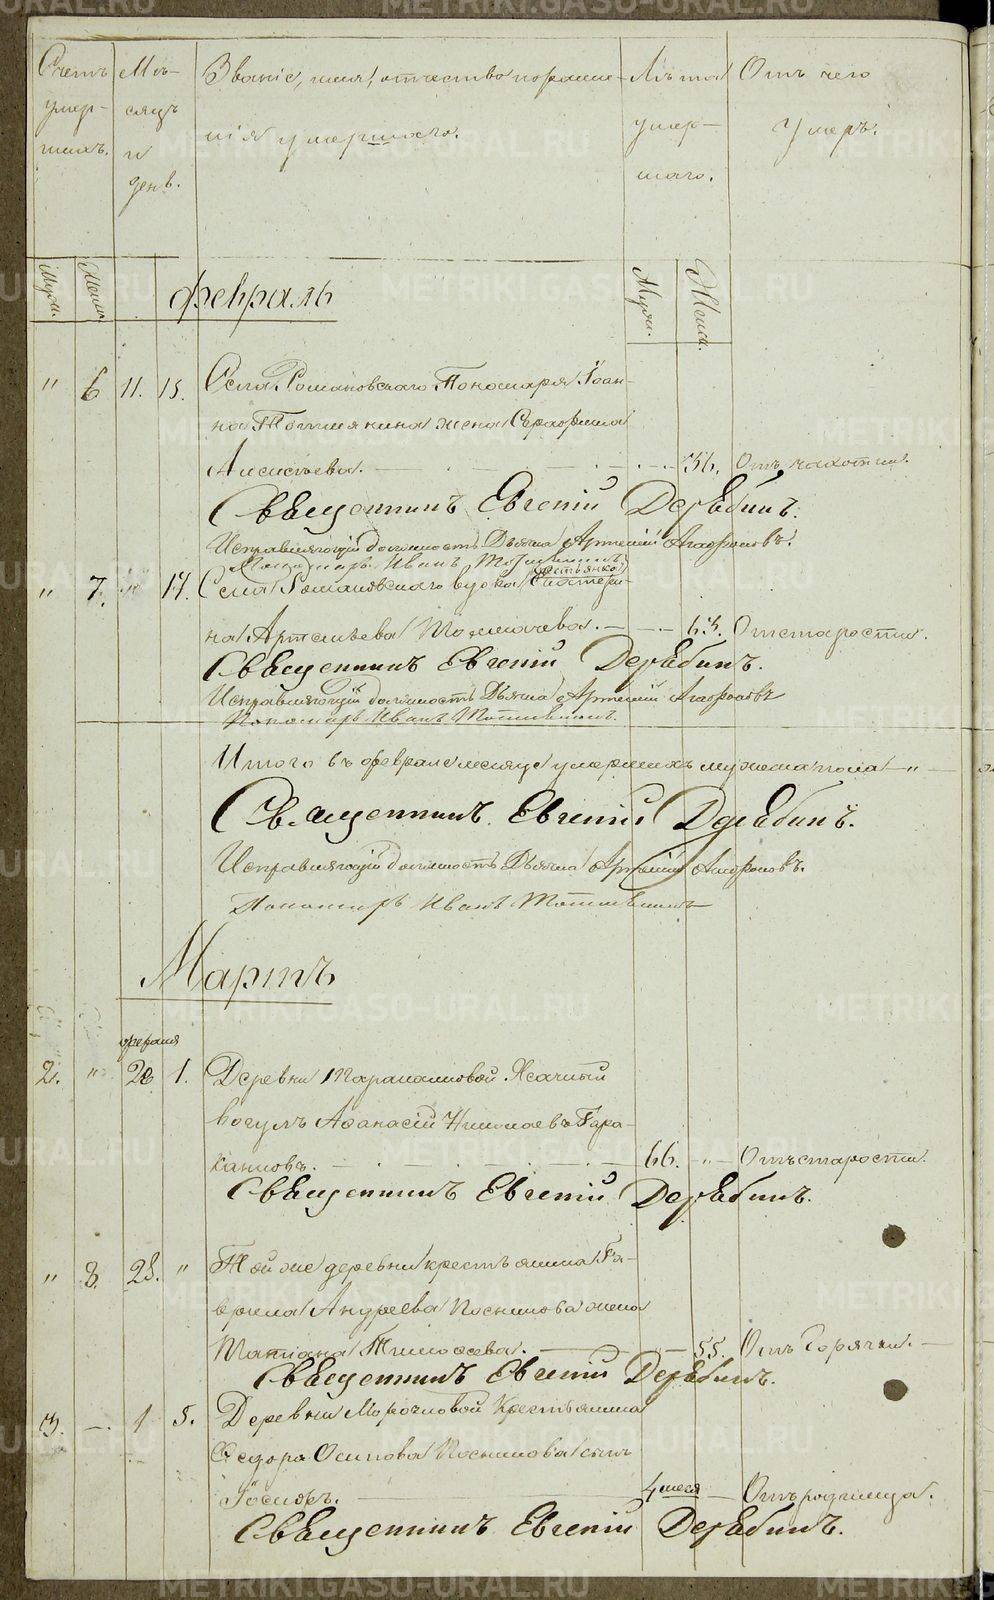 Счетъ умер-
шихъ.
Мѣ-
сяцъ
и
день.
Званіе, имя, отчество и фамил-
лія умершаго.
Лѣта
умер-
шаго.
Отъ чего
умеръ.
Муж.
Жен.
Февраль
Муж.
Женс.
" 6 11. 15. Села Романовскаго Пономаря Іоан-
на Тотмянина жена Серафима
Алексѣева. 36. Отъ чахотки.
Священникъ Евгеній Дерябинъ.
Исправляющій должность Дьячка Артемій Агафоновъ.
Пономарь Иванъ Тотмянинъ
" 7. 17. Села Романовскаго вдова крестьянка Екатери-
на Артемьева Толмачева. 63. От старости.
Священникъ Евгеній Дерябинъ.
Исправляющій должность Дьячка Артемій Агафоновъ
Пономарь Иванъ Тотмянинъ.
Итого въ феврале месяце умершихъ мужеска пола "
Священникъ Евгеній Дерябинъ.
Исправляющій должность Дьячка Артемій Агафоновъ.
Пономарь Иванъ Тотмянинъ
Мартъ
февраля
2. " 28 1. Деревни Таракановой Ясачный
вогулъ Афанасій Николаевъ Тара-
кановъ. 66. " Отъ старости.
Священникъ Евгеній Дерябинъ.
" 8. 28. " Той же деревни крестьянина Га-
врила Андреева Посникова жена
Татіана Тимофеева. 55. Отъ Горячки.
Священникъ Евгеній Дерябинъ.
3. 1 5. Деревни Морочковой Крестьянина
Федора Осипова Посникова сынъ
Іосифъ. 4 меся Отъ родимца.
Священникъ Евгеній Дерябинъ.
METRIKI.GASO-URAL.RU